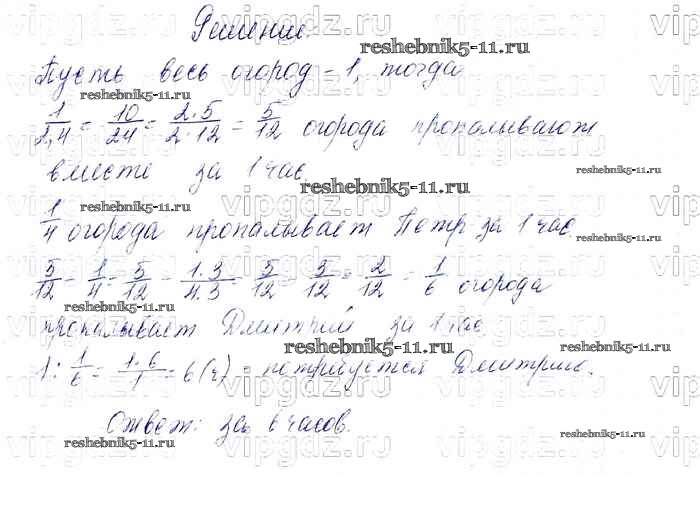 Решение.
Пусть весь огород - 1, тогда
1/2,4 = 10/24 = 2·5/2·12 = 5/12 огорода пропалывают
вместе за 1 час.
1/4 огорода пропалывает Петр за 1 час.
5/12 - 1/4 = 5/12 - 1·3/4·3 = 5/12 - 3/12 = 2/12 = 1/6 огорода
пропалывает Дмитрий за 1 час
1 : 1/6 = 1·6/1 = 6 (ч) - потребуется Дмитрию.
Ответ: за 6 часов.
vipgdz.ru
reshebnik5-11.ru